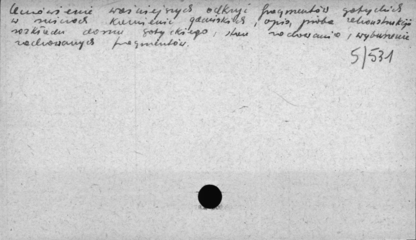 Omówienie ważniejszych odkryć fragmentów gotyckich
w murach kamienic gdańskich, opis, próba rekonstrukcji
rozkładu domu gotyckiego, stan zachowania, wyburzenie
zachowanych fragmentów.
5/531